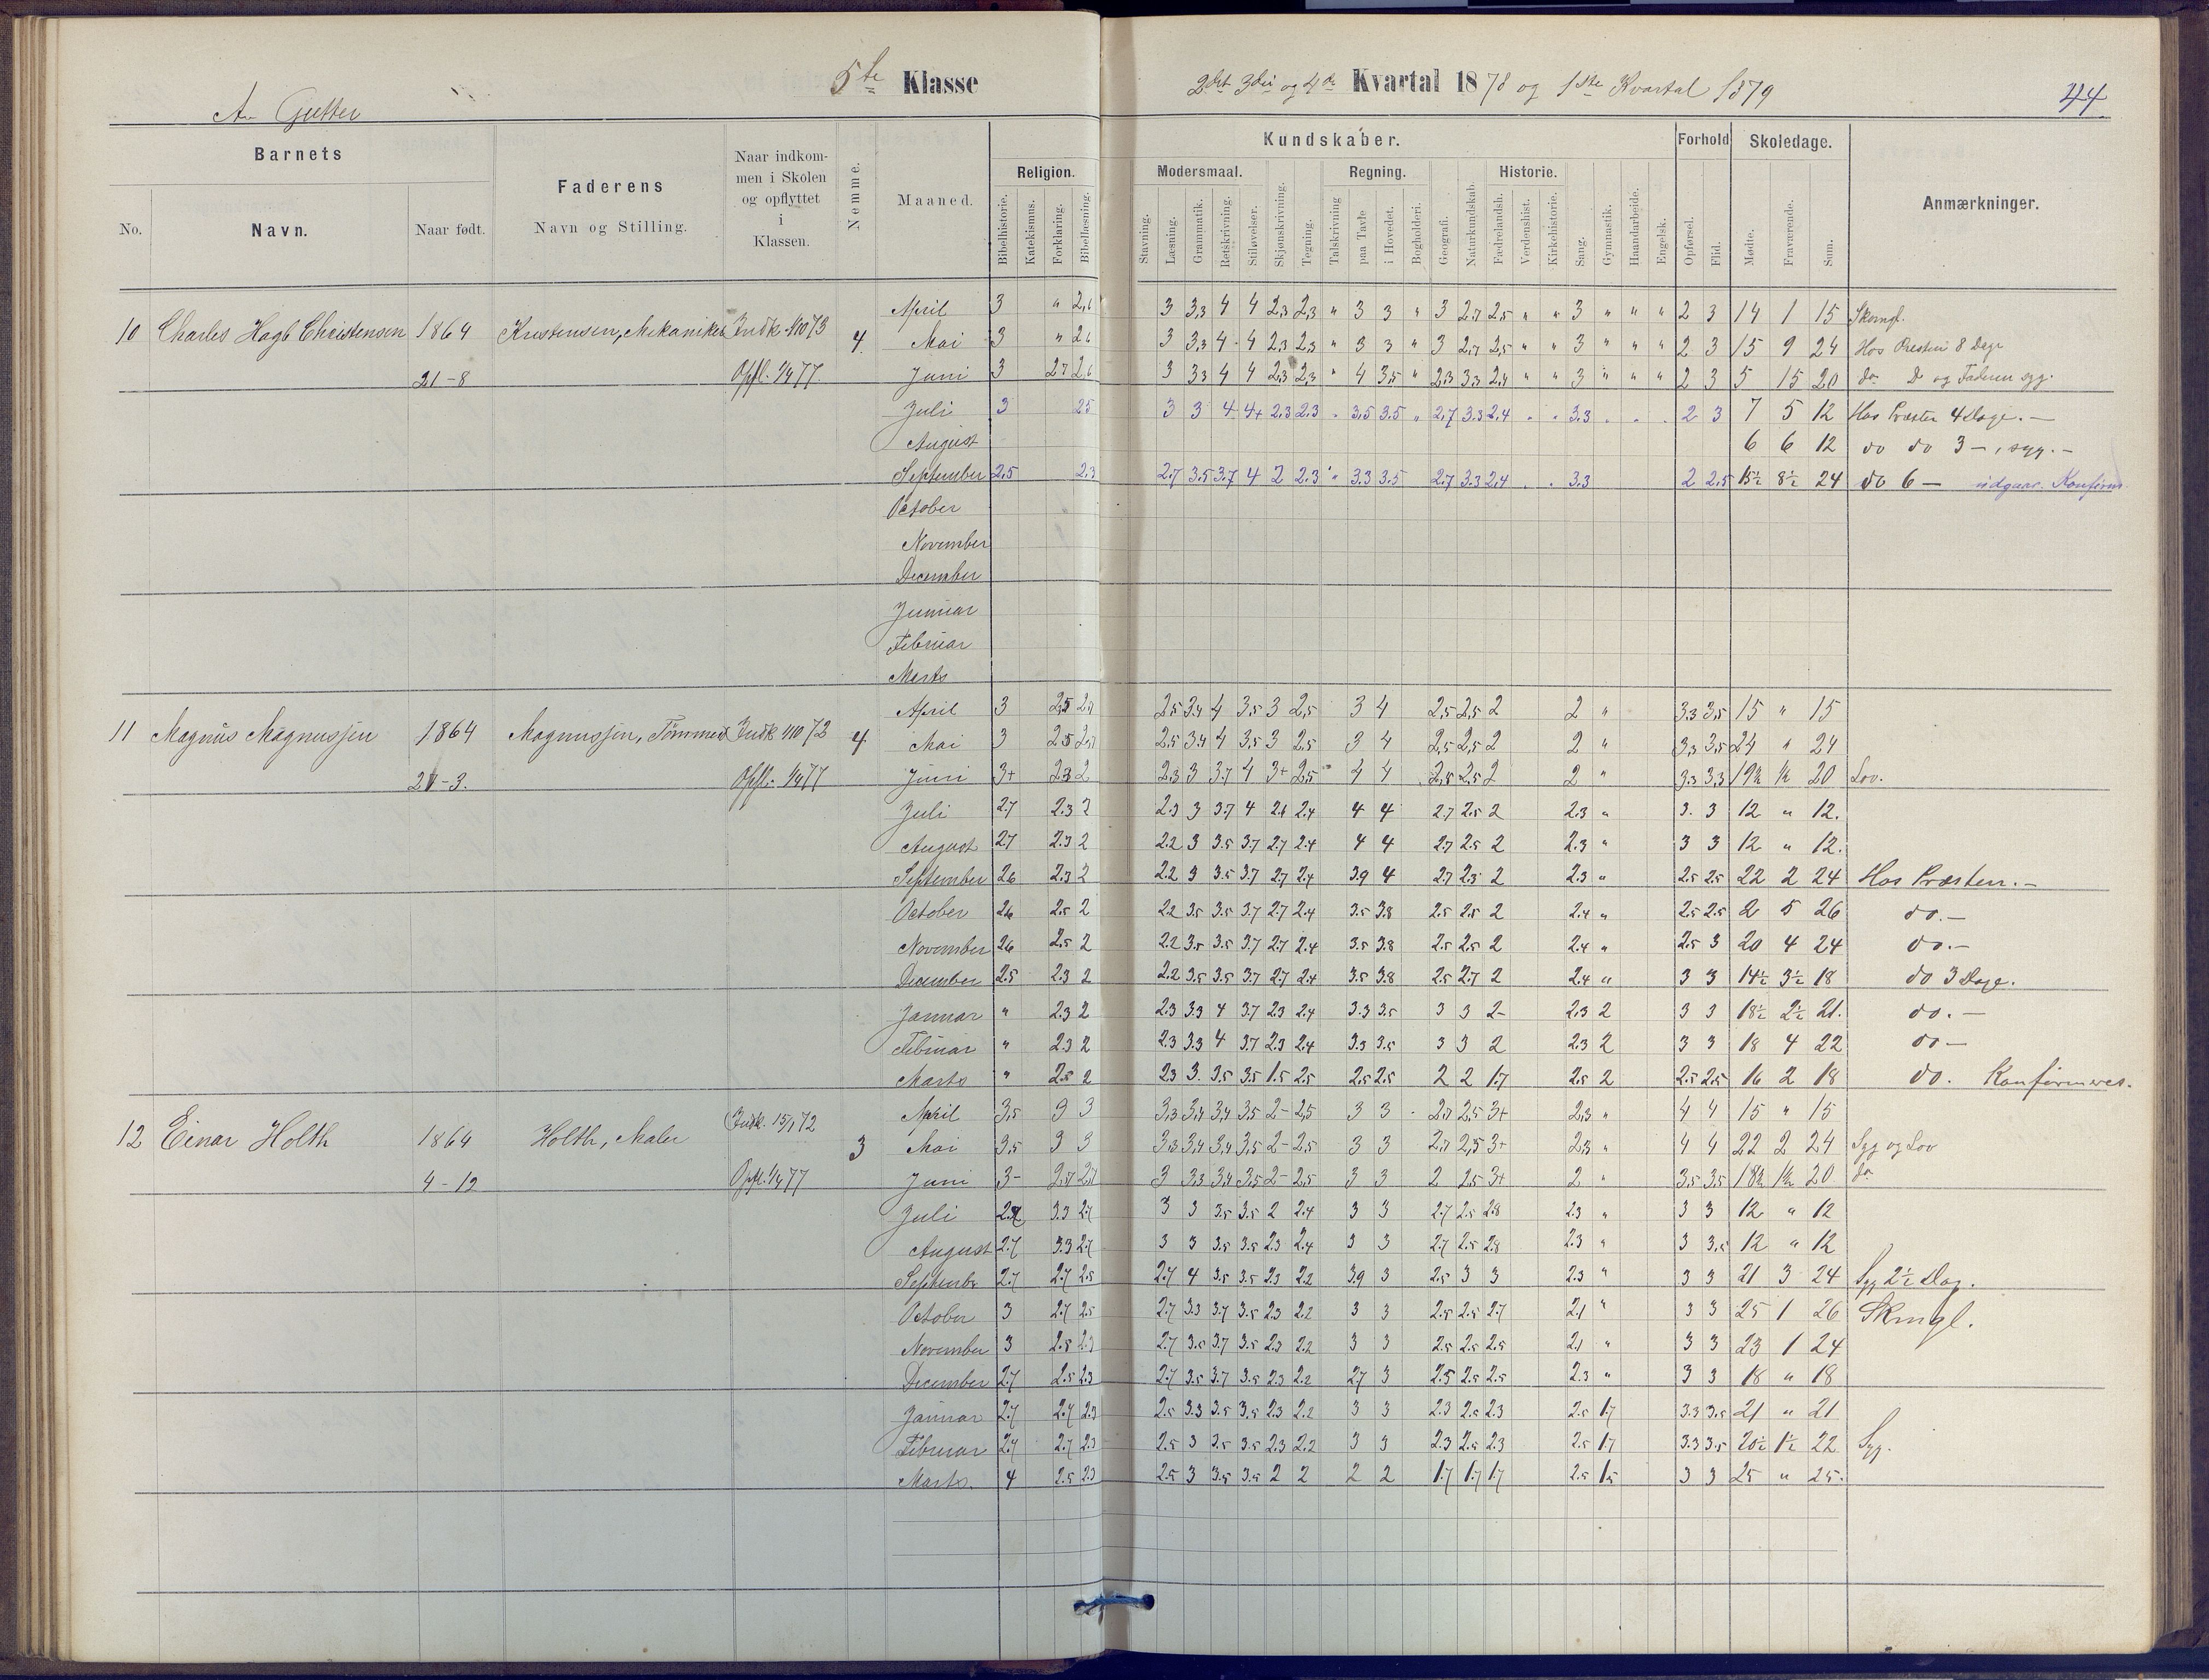 5te Klasse
A. Gutter
2det 3die og 4de Kvartal 1878 og 1ste Kvartal 1879
44.
Barnets
No.
Navn.
Naar født.
Faderens
Navn og Stilling.
Naar indkom-
men i Skolen
og opflyttet
i
Klassen.
Nemme.
Maaned.
Kundskaber.
Religion.
Bibelhistorie.
Katekismus.
Forklaring.
Bibellæsning.
Modersmaal.
Stavning.
Læsning.
Grammatik.
Retskrivning.
Stiløvelser.
Skjønskrivning.
Tegning.
Regning.
Talskrivning
paa Tavle
i Hovedet.
Bogholderi.
Geografi.
Naturkundskab.
Historie.
Fædrelandsh.
Verdenshist.
Kirkehistorie.
Sang.
Gymnastik.
Haandarbeide.
Engelsk.
Forhold
Opførsel.
Flid.
Skoledage.
Mødte.
Fraværende.
Sum.
Anmærkninger.
April 3 " 2,6 3 3,3 4 4 2,3 2,3 " 3 3 " 3 2,7 2,5 " " 3 " " " 2 3 14 1 15 Skomgl.
10 Charles Hagb Christensen 1864 Kristensen, Mekaniker Indk. 1/10 73 4. Mai 3 " 2,6 3 3,3 4 4 2,3 2,3 " 3 3 " 3 2,7 2,5 " " 3 " " " 2 3 15 9 24 Hos Presten 8 Dage
21-8 Opfl. 1/4 77. Juni 3 2,7 2,6 3 3,3 4 4 2,3 2,3 " 4 3,5 " 2,3 3,3 2,4 " " 3 " " " 2 3 5 15 20 do D og Faderen syg.
Juli 3 2.5 3 3 4 4+ 2.3 2.3 " 3.5 3.5 " 2.7 3.3 2.4 " " 3.3 2 3 7 5 12 Hos Præsten 4 Dage.—
August 6 6 12 do do 3 —, syg.—
September 2.5 2.3 2.7 3.5 3.7 4 2 2.3 " 3.3 3.5 2.7 3.3 2.4 3.3 2 2.5 15½ 8½ 24 do 6 —
October
November
December
Januar
Februar
Marts
April 3 2,5 2,7 2,5 3,4 4 3,5 3 2,5 3 4 2,5 2,5 2 2 " 3,3 3,5 15 " 15
11 Magnus Magnussen 1864 Magnussen, Indk 1/10 72 4 Mai 3 2,5 2,7 2,5 3,4 4 3,5 3 2,5 3 4 2,5 2,5 2 2 " 3,3 3,5 24 " 24
21-3. Opfl. 1/4 77 Juni 3+ 2,3 2 2,3 3 3,7 4 3+ 2,5 4 4 2,5 2,5 2 2 " 3,3 3,3 19½ ½ 20 Lov.
Juli 2.7 2.3 2 2.3 3 3.7 4 2.6 2.4 4 4 2.7 2.5 2 2.3 " 3. 3 12 " 12.
August 2.7 2.3 2 2.2 3 3.5 3.7 2.7 2.4 4 4 2.7 2.5 2 2.3 " 3 3 12 " 12.
September 2.6 2.3 2 2.2 3 3.5 3.7 2.7 2.4 3.9 4 2.7 2.3 2 2.3 " 2.5 2.5 22 2 24 Hos Præsten.—
October 2.6 2.5 2 2.2 3.5 3.5 3.7 2.7 2.4 3.5 3.8 2.5 2.5 2 2.4 " 2.5 2.5 2 5 26 do.—
November 2.6 2.5 2 2.2 3.5 3.5 3.7 2.7 2.4 3.5 3.8 2.5 2.5 2 2.4 " 2.5 3 20 4 24 do.—
December 2.5 2.3 2 2.2 3.5 3.5 3.7 2.7 2.4 3.5 3.8 2.5 2.7 2 2.4 " 3 3 14½ 3½ 18 do 3 Dage.
Januar " 2.3 2 2.3 3.3 4 3.7 2.3 2.4 3.3 3.5 3 3 2- 2.3 2 3 3 18½ 2½ 21. do.—
Februar " 2.3 2 2.3 3.3 4 3.7 2.3 2.4 3.3 3.5 3 3 2 2.3 2 3 3 18 4 22 do—
Marts " 2.5 2 2.3 3. 3.5 3.5 1.5 2.5 2.5 2.5 2 2 1.7 2.5 2 2.5 2.5 16 2 18 do. Konfirmeres.
Indk. 15/1 72 April 3,5 3 3 3,3 3,4 3,4 3,5 2- 2,5 3 3 2,7 2,5 3+ 2,3 " 4 4 15 " 15
12 Einar Holth 1864 Holth, Maler 3 Mai 3,5 3 3 3,3 3,4 3,4 3,5 2- 2,5 3 3 2,7 2,5 3+ 2,3 " 4 4 22 2 24 Syg og Lov
4-12 Opfl. 1/4 77 Juni 3- 2,7 2,7 3 3,3 3,4 3,5 2- 2,5 3 3 2 2,5 3+ 2 " 3,5 3,5 18½ 1½ 20 do
Juli 2.7 3.3 2.7 3 3 3.5 3.5 2 2.4 3 3 2.7 2.5 2.8 2.3 " 3 3 12 " 12
August 2.7 3.3 2.7 3 3 3.5 3.5 2.3 2.4 3 3 2.7 2.5 2.8 2.3 " 3 3.5 12 " 12
Septembr 2.7 2.7 2.5 2.7 4 3.5 3.5 2.3 2.2 3.9 3 2.5 3 3 2.3 " 3 3 21 3 24 Syg 2½ Dag.
October 3 2.7 2.5 2.7 3.3 3.7 3.5 2.3 2.2 3 3 2.5 2.5 2.7 2.1 " 3 3 25 1 26 Skmgl.
November 3 2.5 2.3 2.7 3.5 3.7 3.5 2.3 2.2 3 3 2.5 2.5 2.5 2.1 " 3 3 23 1 24
December 2.7 2.5 2.3 2.7 3.5 3.7 3.5 2.3 2.2 2.7 3 2.5 2.5 2.5 2.3 " 3 3 18 " 18
Januar 2.7 2.7 2.3 2.5 3.3 3.5 3.5 2.3 2.2 3 3 2.3 2.5 2.3 2.5 1.7 3.3 3.5 21 " 21
Februar 2.7 2.7 2.3 2.5 3 3.5 3.5 2.3 2.2 3 3 2.3 2.5 2.3 2.5 1.7 3.3 3.5 20½ 1½ 22 Syg.
Marts. 4 2.5 2.3 2.5 3 3.5 3.5 2 2 2 2 1.7 1.7 1.7 2.5 1.5 3 3 25 " 25.